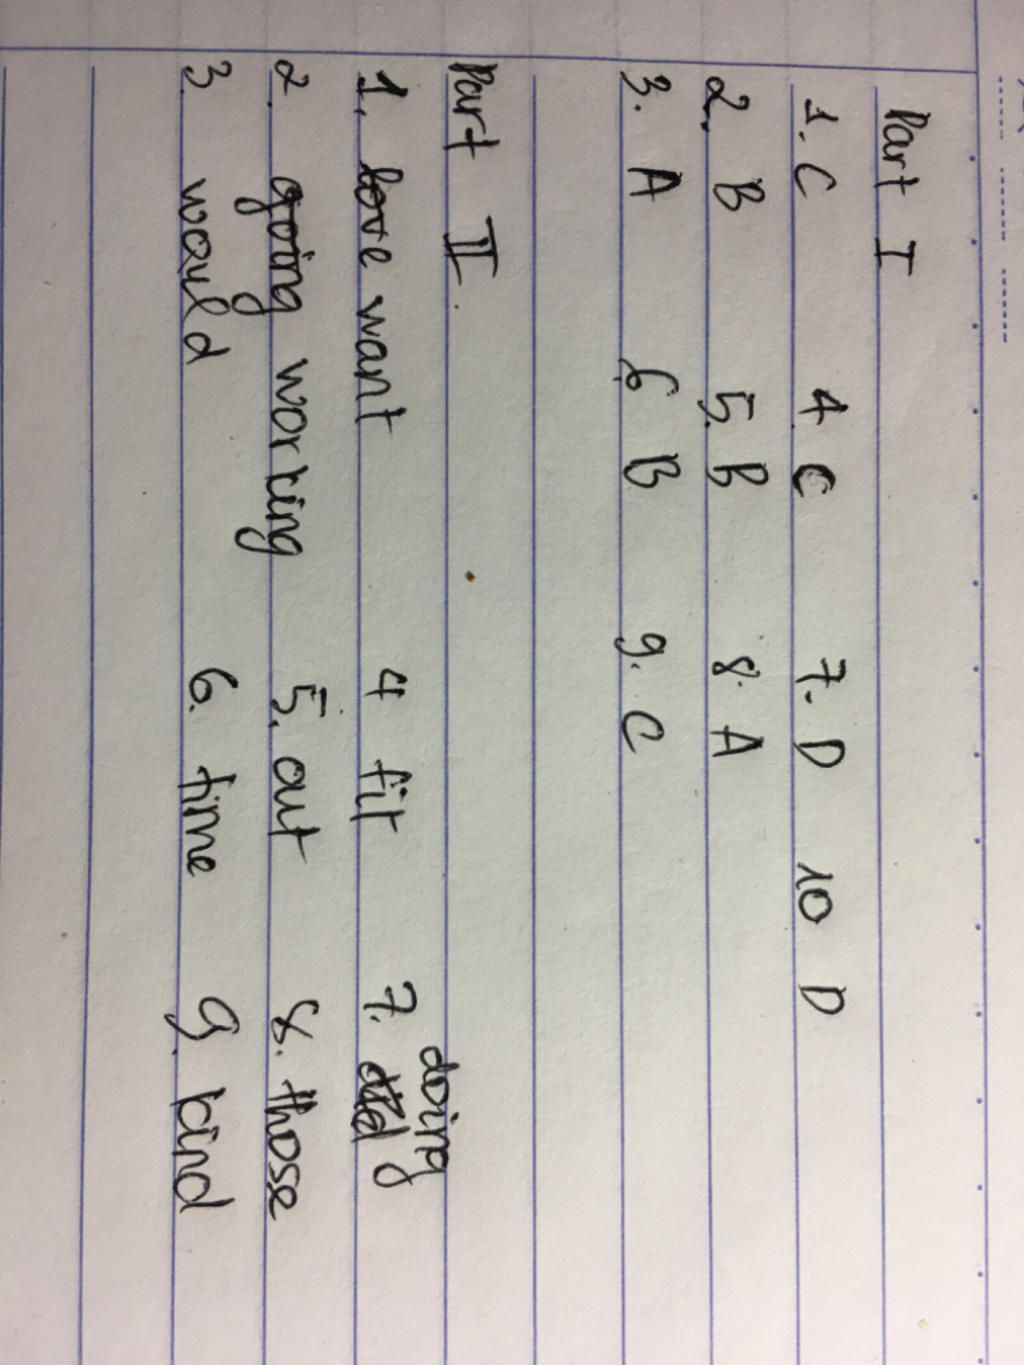 Part I
1. C 4 C 7. D 10 D
2. B 5. B 8. A
3. A 6 B 9. C
Part II.
1. love want 4 fit 7. did doing
2. going working 5. out 8. those
3. would 6. time 9. kind